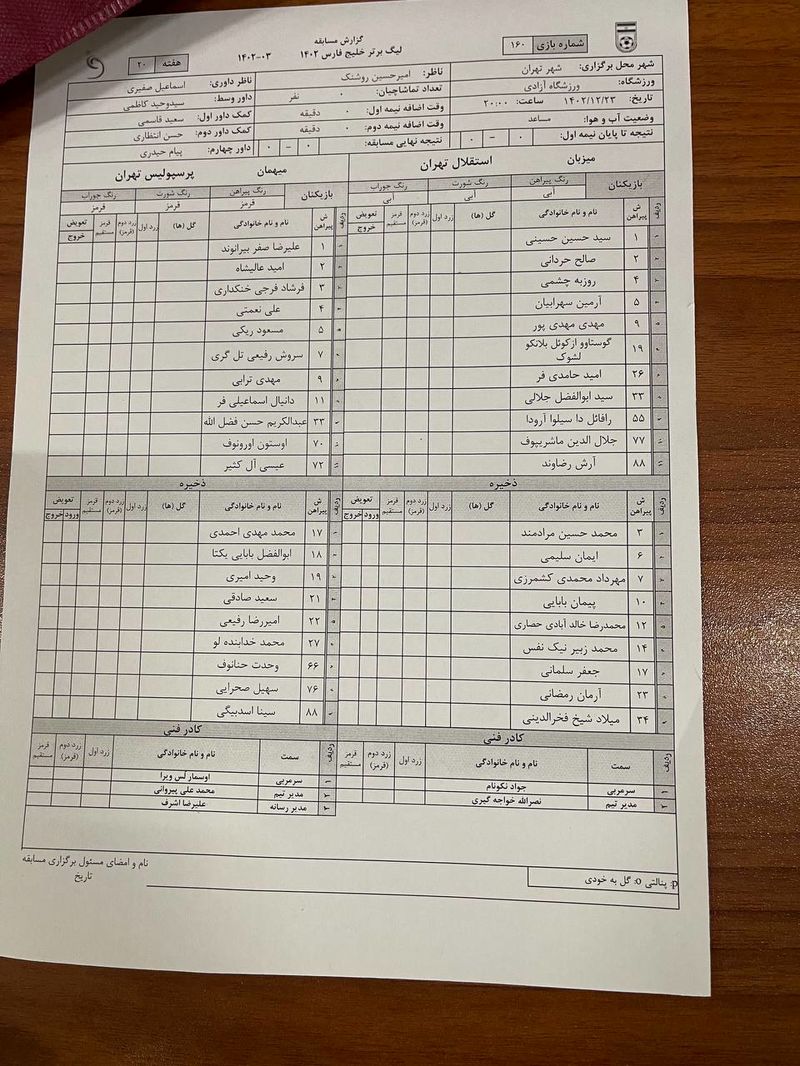 گزارش مسابقه
لیگ برتر خلیج فارس ۱۴۰۲ ۰۳-۱۴۰۲
شماره بازی: ۱۶۰
هفته ۲۰
شهر محل برگزاری: شهر تهران
ورزشگاه: ورزشگاه آزادی
تاریخ: ۱۴۰۲/۱۲/۲۳ ساعت: ۲۰:۰۰
وضعیت آب و هوا: مساعد
نتیجه تا پایان نیمه اول: ۰ - ۰
ناظر: امیرحسین روشنک
تعداد تماشاچیان: ۰ نفر
وقت اضافه نیمه اول: ۰ دقیقه
وقت اضافه نیمه دوم: ۰ دقیقه
نتیجه نهایی مسابقه: ۰ - ۰
ناظر داوری: اسماعیل صفیری
داور وسط: سیدوحید کاظمی
کمک داور اول: سعید قاسمی
کمک داور دوم: حسن انتظاری
داور چهارم: پیام حیدری
میزبان استقلال تهران
بازیکنان رنگ پیراهن رنگ شورت رنگ جوراب
آبی آبی آبی
ردیف ش پیراهن نام و نام خانوادگی گل (ها) زرد اول زرد دوم (قرمز) قرمز مستقیم تعویض
خروج
۱ سید حسین حسینی
۲ صالح حردانی
۴ روزبه چشمی
۵ آرمین سهرابیان
۹ مهدی مهدی پور
۱۹ گوستاوو ازکوئل بلانکو لشوک
۲۶ امید حامدی فر
۳۳ سید ابوالفضل جلالی
۵۵ رافائل دا سیلوا آرودا
۷۷ جلال الدین ماشریپوف
۸۸ آرش رضاوند
ذخیره
ردیف ش پیراهن نام و نام خانوادگی گل (ها) زرد اول زرد دوم (قرمز) قرمز مستقیم تعویض
ورود خروج
۳ محمد حسین مرادمند
۶ ایمان سلیمی
۷ مهرداد محمدی کشمرزی
۱۰ پیمان بابایی
۱۲ محمدرضا خالد آبادی حصاری
۱۴ محمد زبیر نیک نفس
۱۷ جعفر سلمانی
۲۳ آرمان رمضانی
۳۴ میلاد شیخ فخرالدینی
کادر فنی
ردیف سمت نام و نام خانوادگی زرد اول زرد دوم (قرمز) قرمز مستقیم
۱ سرمربی جواد نکونام
۲ مدیر تیم نصرالله خواجه گیری
میهمان پرسپولیس تهران
بازیکنان رنگ پیراهن رنگ شورت رنگ جوراب
قرمز قرمز قرمز
ردیف ش پیراهن نام و نام خانوادگی گل (ها) زرد اول زرد دوم (قرمز) قرمز مستقیم تعویض
خروج
۱ علیرضا صفر بیرانوند
۲ امید عالیشاه
۳ فرشاد فرجی خنکداری
۴ علی نعمتی
۵ مسعود ریکی
۷ سروش رفیعی تل گری
۹ مهدی ترابی
۱۱ دانیال اسماعیلی فر
۳۳ عبدالکریم حسن فضل الله
۷۰ اوستون اورونوف
۷۲ عیسی آل کثیر
ذخیره
ردیف ش پیراهن نام و نام خانوادگی گل (ها) زرد اول زرد دوم (قرمز) قرمز مستقیم تعویض
ورود خروج
۱۷ محمد مهدی احمدی
۱۸ ابوالفضل بابایی یکتا
۱۹ وحید امیری
۲۱ سعید صادقی
۲۲ امیررضا رفیعی
۲۷ محمد خدابنده لو
۶۶ وحدت حنانوف
۷۶ سهیل صحرایی
۸۸ سینا اسدبیگی
کادر فنی
ردیف سمت نام و نام خانوادگی زرد اول زرد دوم (قرمز) قرمز مستقیم
۱ سرمربی اوسمار لس ویرا
۲ مدیر تیم محمد علی پیروانی
۳ مدیر رسانه علیرضا اشرف
نام و امضای مسئول برگزاری مسابقه
تاریخ
p: پنالتی o: گل به خودی